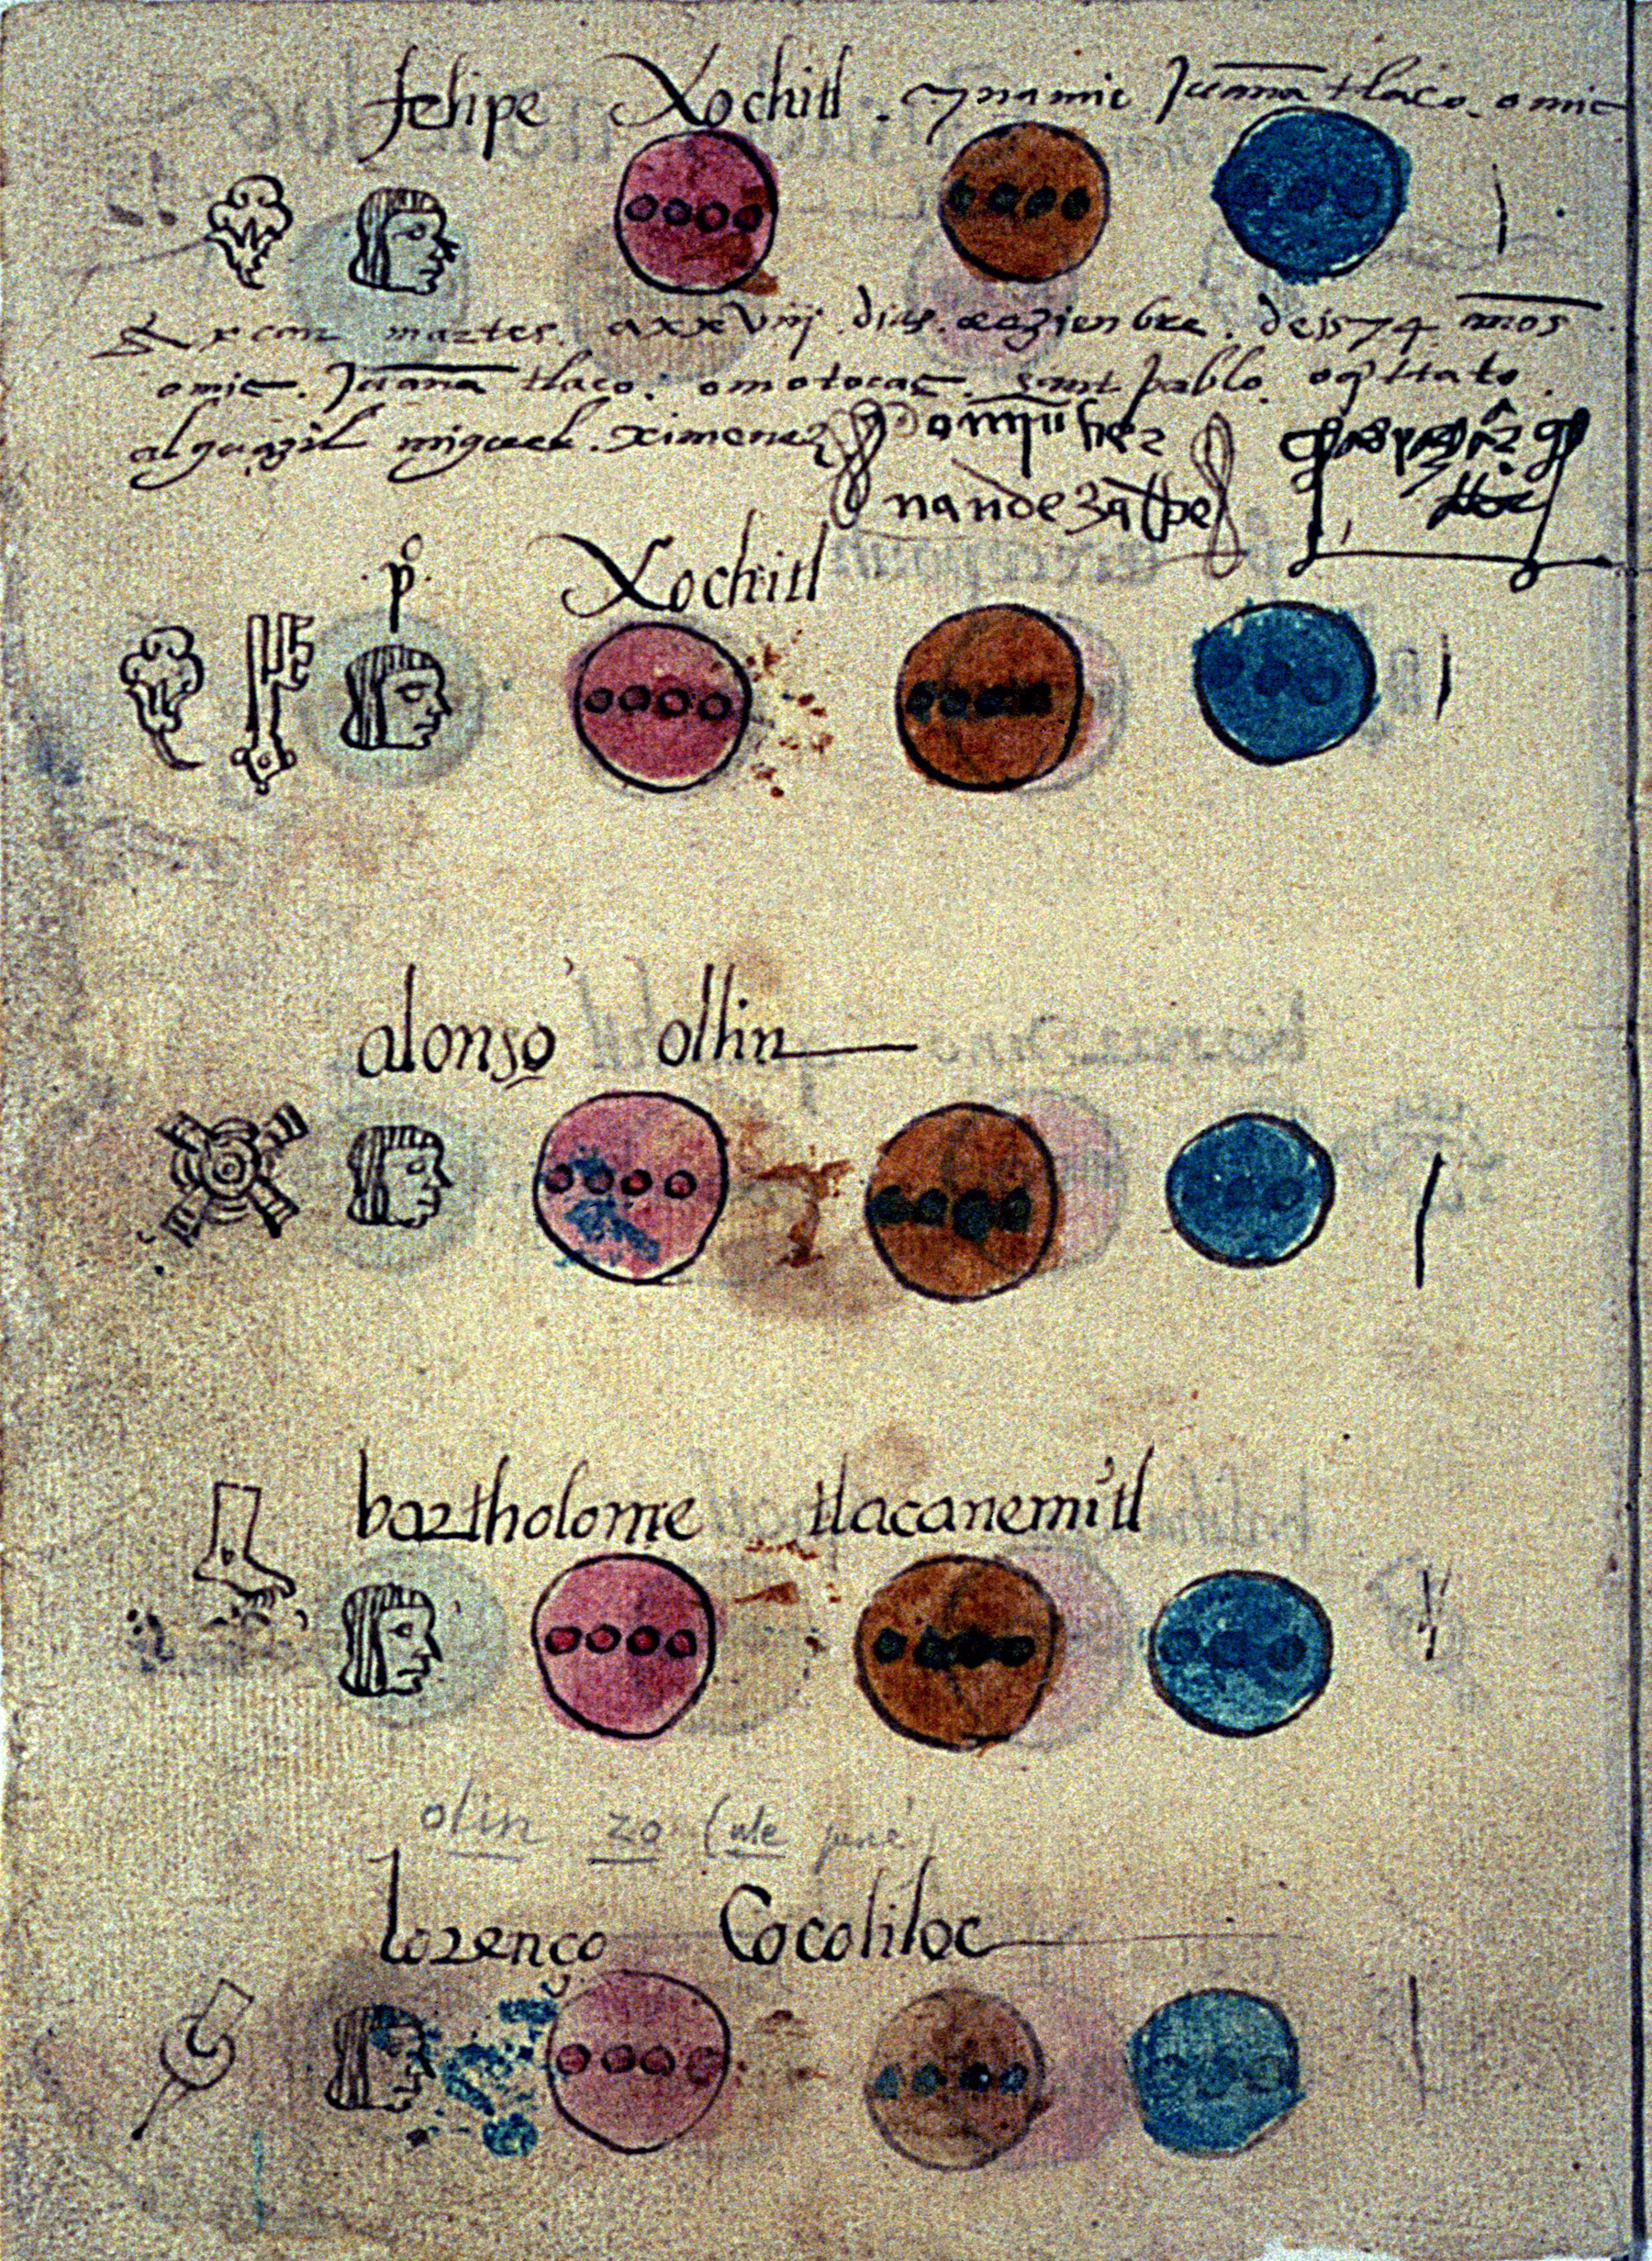 felipe Xochitl . ynamic Juana tlaco. omic
martes. a xxviij dias. dezienbre. de 1574 años
omic. Juana tlaco. omotocac. sant pablo. oqittato
alguazil miguel. ximenez
pº Xochitl
alonso ollin
bartholome tlacanemitl
olin zo
lorenço Cocoliloc